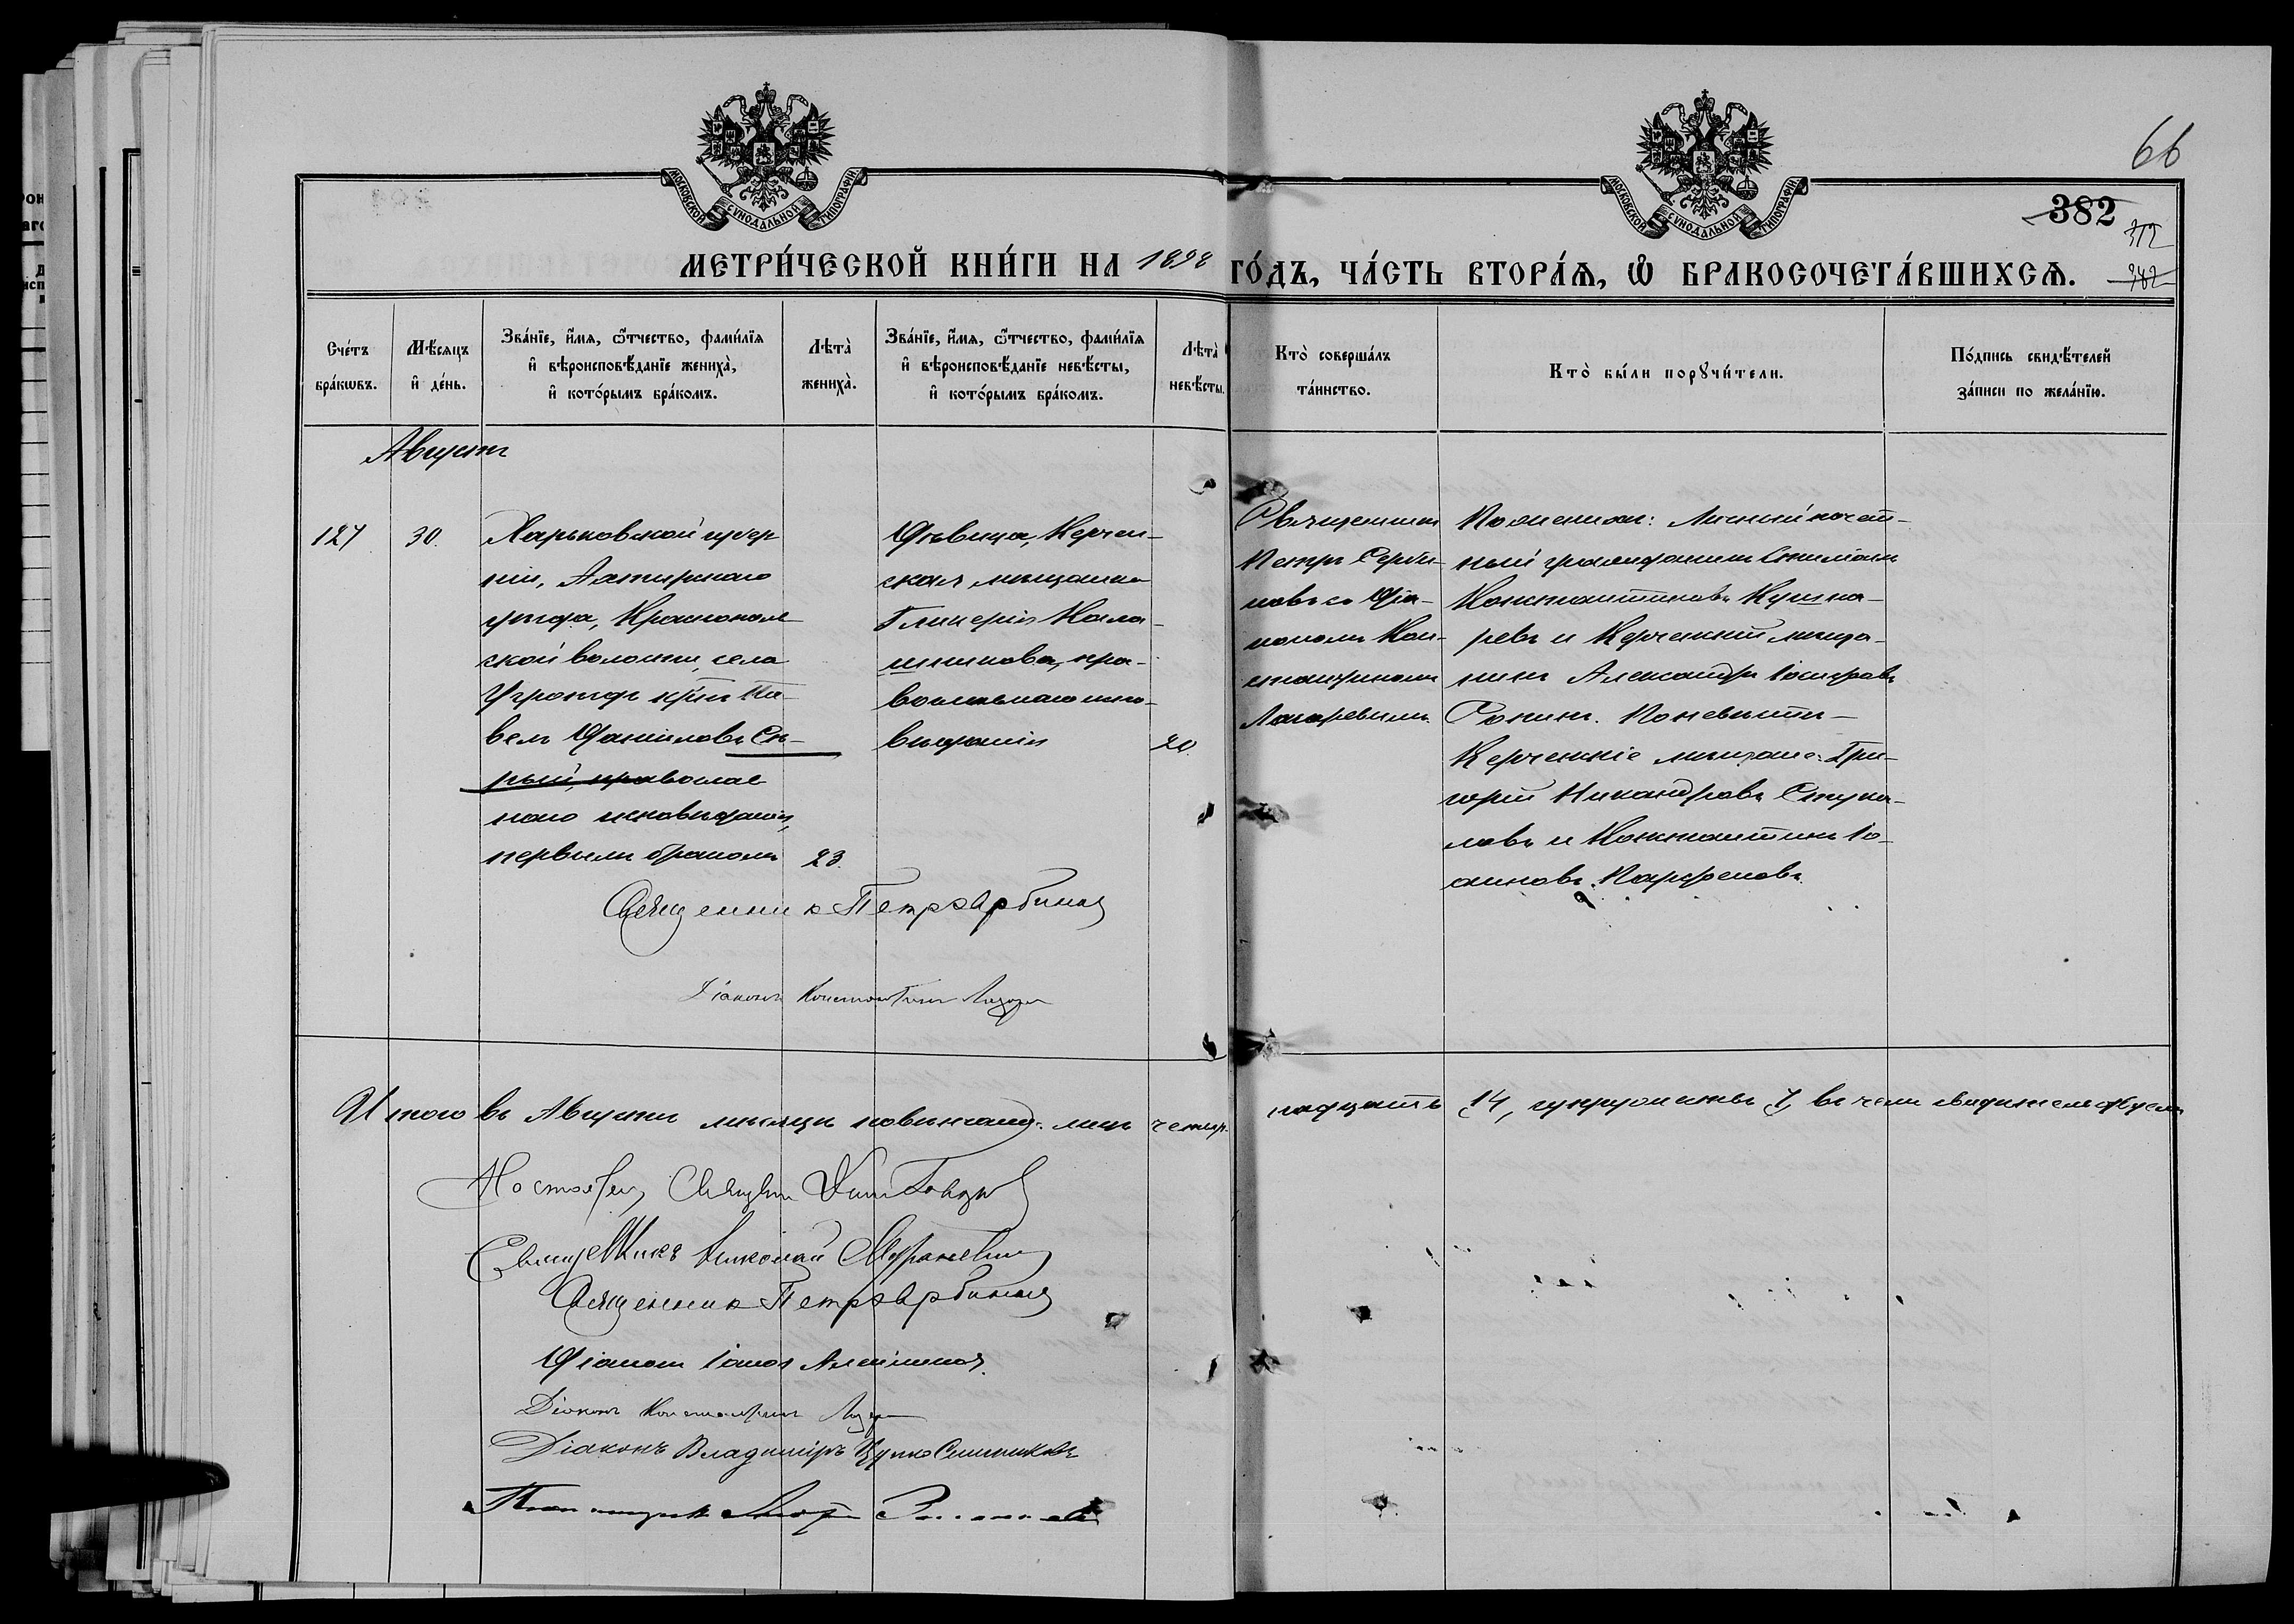 66
382
312
342
МОСКОВСКОЙ СѴНОДАЛЬНОЙ ТИПОГРАФІИ
МОСКОВСКОЙ СѴНОДАЛЬНОЙ ТИПОГРАФІИ
МЕТРИ́ЧЕСКОЙ КНИ́ГИ НА 1898 ГО́ДЪ, ЧА́СТЬ ВТОРА́Ѧ, Ѽ БРАКОСОЧЕТА́ВШИХСѦ.
Сче́тъ
бра́кѡвъ.
Мѣ́сяцъ
и҆ де́нь.
Зва́нїе, и҆́мя, ѻ҆́тчество, фами́лїя
и҆ вѣроисповѣ́данїе жениха̀,
и҆ кото́рымъ бра́комъ.
Лѣта̀
жениха̀.
Зва́нїе, и҆́мя, ѻ҆́тчество, фами́лїя
и҆ вѣроисповѣ́данїе невѣ́сты,
и҆ кото́рымъ бра́комъ.
Лѣта̀
невѣ́сты.
Кто̀ соверша́лъ
та́инство.
Кто̀ бы́ли порꙋчи́тели.
По́дпись свидѣ́телей
за́писи по жела́нїю.
Августъ
127
30.
Харьковской губер
ніи, Ахтирскаго
уѣзда, Краснополь
ской волости, села
Угроѣдъ кр̃нъ Па-
велъ Даниловъ Сѣ-
рый, православ
наго исповѣданія,
первымъ бракомъ
23.
Дѣвица, Керчен-
ская мѣщанка
Гликерія Кала-
шникова, пра-
вославнаго испо-
вѣданія
20.
Священникъ
Петръ Серби-
новъ съ Діа-
кономъ Кон-
стантиномъ
Лазаревымъ
По женихѣ: Личный почет-
ный гражданинъ Стиліанъ
Константиновъ Кушна-
ревъ и Керченскій мѣща-
нинъ Александръ Іосифовъ
Ронинъ. По невѣстѣ-
Керченскіе мѣщане: Гри-
горій Никандровъ Стука-
ловъ и Константинъ Іо-
анновъ Парфеновъ.
Священникъ Петръ Сербиновъ
Діаконъ Константинъ Лазарев
Итого въ Августѣ мѣсяцѣ повѣнчано: лицъ четыр-
надцать 14, супружествъ 7, въ чемъ свидѣтельствуемъ
Священникъ Николай
Священникъ Петръ Сербиновъ
Діаконъ Іоаннъ
Діаконъ Константинъ Лазарев
Діаконъ Владиміръ